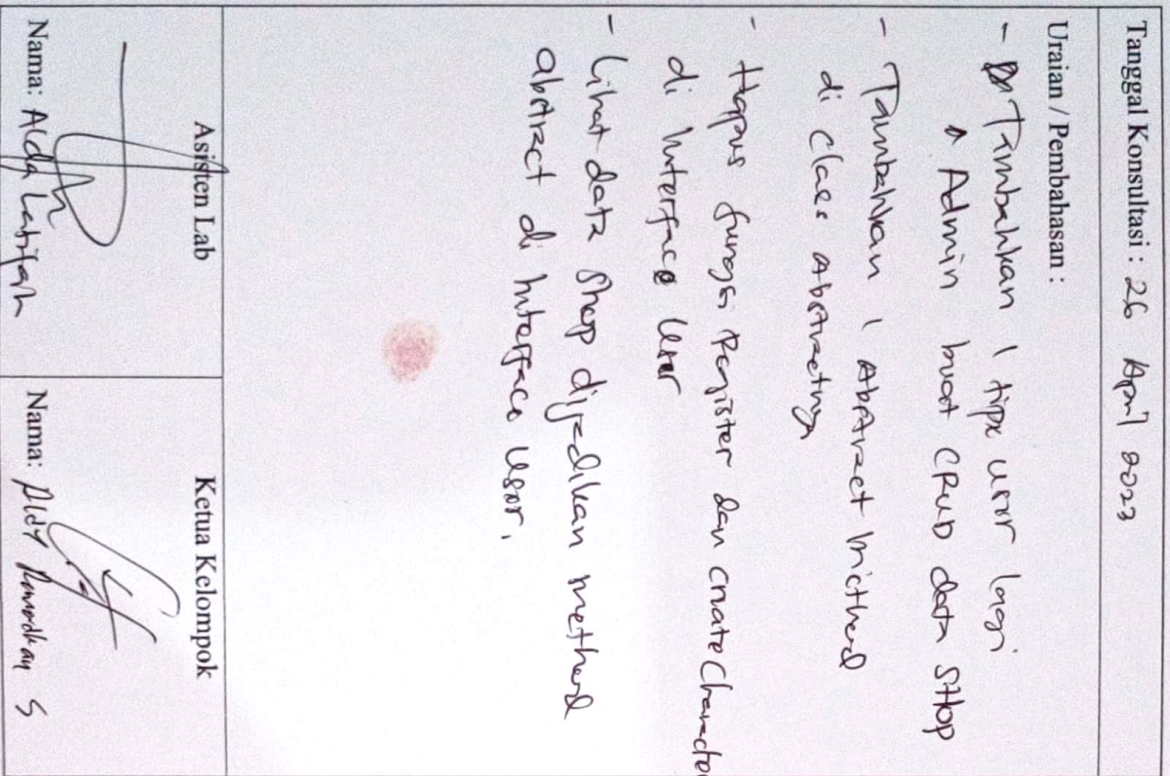 Tanggal Konsultasi : 26 April 2023
Uraian / Pembahasan :
- Tambahkan 1 tipe user lagi
Admin buat CRUD data SHOP
- Tambahkan 1 Abstract Method
di class Abstractnya
- Hapus fungsi Register dan createCharacter
di Interface User
- Lihat data Shop dijadikan method
abstract di Interface User.
Asisten Lab
Ketua Kelompok
Nama: Alda Latifah
Nama: Aldy S